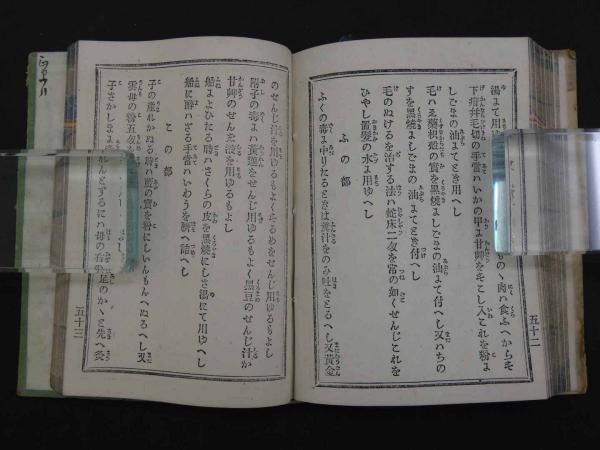 湯まて用
の丶肉ハ食ふへからす
下疳并毛蝨の手當ハいかの甲ま甘艸をそこし入これを粉ま
しごまの油まてとき用へし
毛ハゑ藥枳殻の實を黒燒ましごまの油まて付へし又ハちの
すを黒燒ましごまの油まてとき付へし
毛のぬけるを治する法ハ蛇床二匁を常の如くせんじこれを
ひやし置髮の水ま用へし
ふの部
ふくの毒ま中りたるときは糞汁をのみ吐をとるへし又黄金
五十二
のせんじ汁を用ゆるもよくするめをせんじ用ゆるもよし
附子の毒まハ黄連をせんじ用ゆるもよく黒豆のせんじ汁か
甘艸のせん玄液を用ゆるもよし
船まよひたる時ハさくらの皮を黒燒にしさ湯にて用ゆへし
船に醉ハざる手當ハいわうを臍へ詰へし
この部
子の産れかぬる時ハ藍の實を粉にしいんもんへぬるへし又
雲母の粉五匁を
子さかしまま
れんとするにハ母の右の
足のかゝと先へ灸
五十三